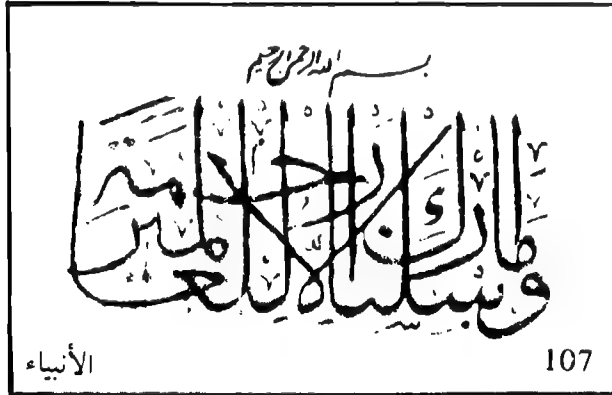 بسم الله الرحمن الرحيم
وما أرسلناك إلا رحمة للعالمين
الأنبياء 107